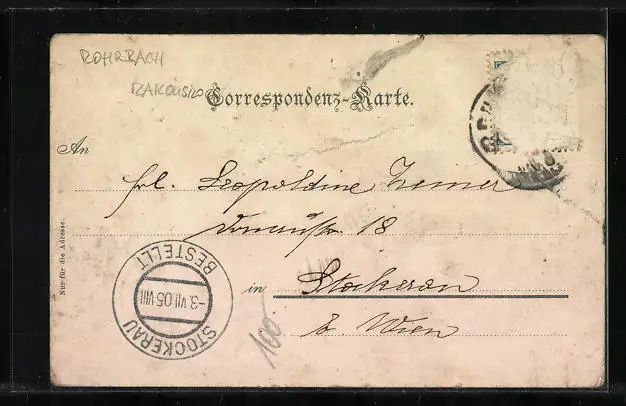 ROHRBACH
RAKOUSKO
Correspondenz-Karte.
An
Frl. Leopoldine
18
in Stockerau
b. Wien
Nur für die Adresse.
STOCKERAU
-3.VII.05.VIII
BESTELLT
100